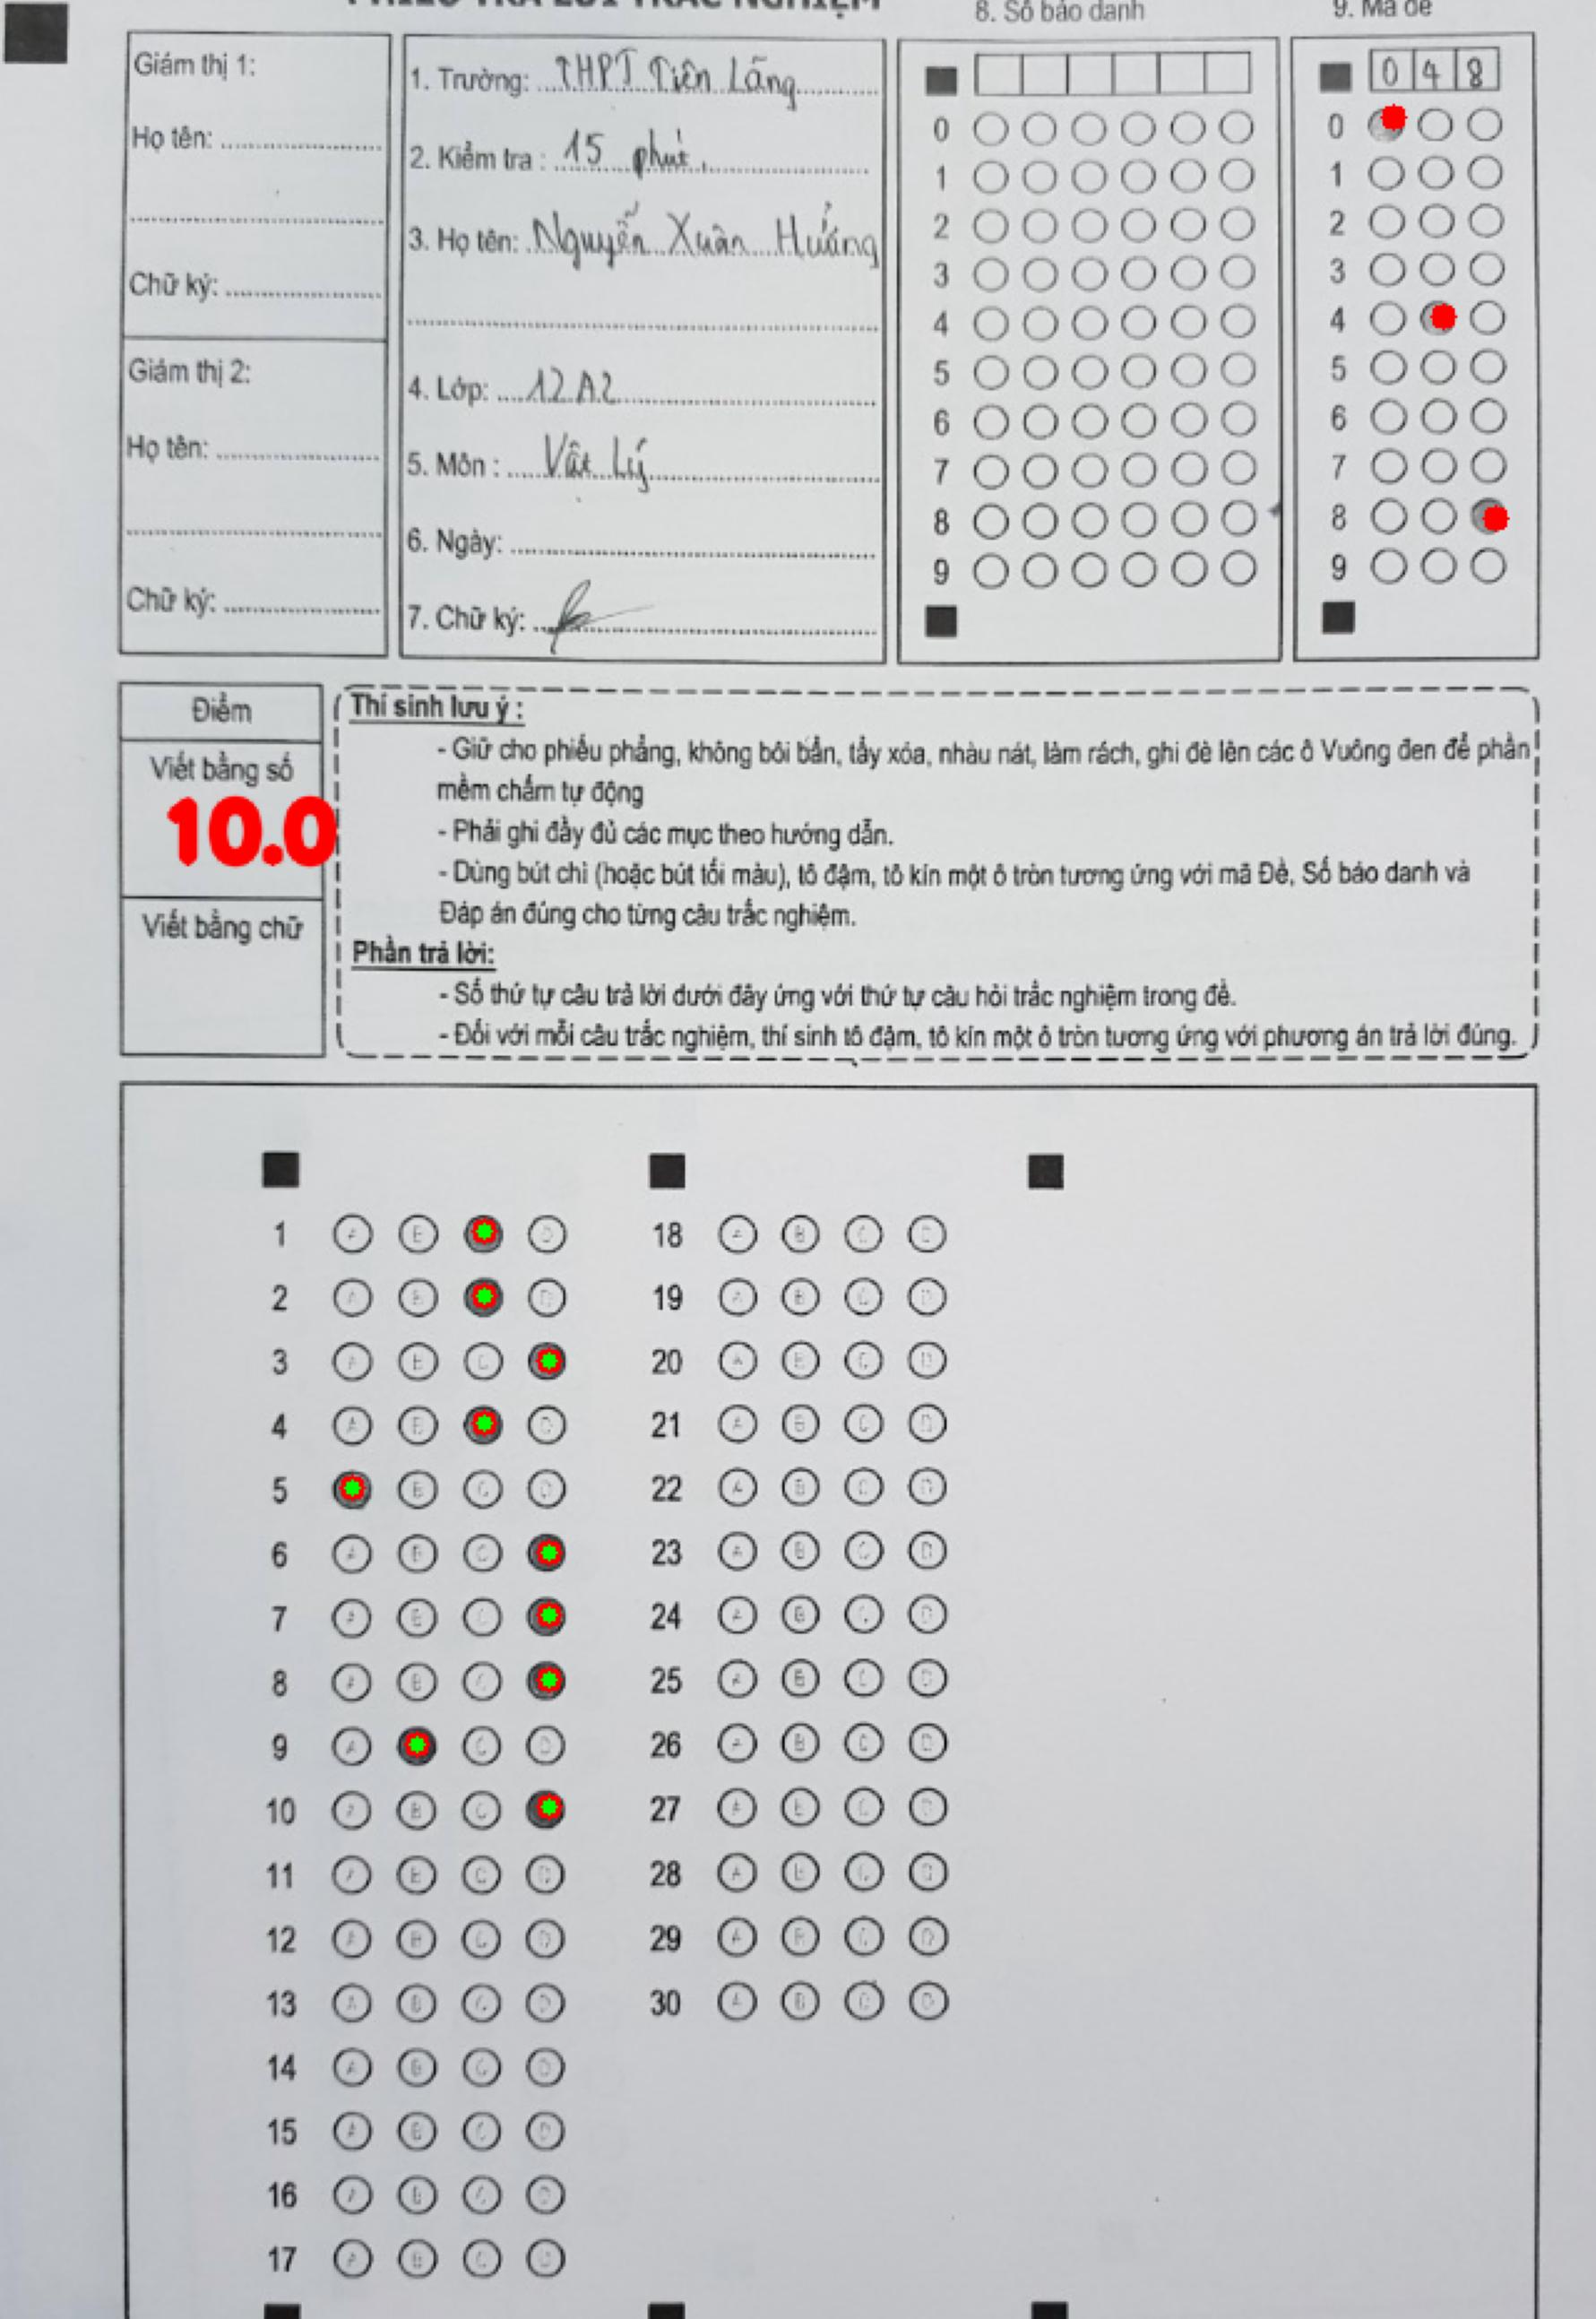 PHIẾU TRẢ LỜI TRẮC NGHIỆM
8. Số báo danh
9. Mã đề
Giám thị 1:
Họ tên:
Chữ ký:
Giám thị 2:
Họ tên:
Chữ ký:
1. Trường: THPT Tiên Lãng
2. Kiểm tra : 15 phút.
3. Họ tên: Nguyễn Xuân Hưởng
4. Lớp: 12A2
5. Môn : Vật Lý
6. Ngày:
7. Chữ ký:
0
1
2
3
4
5
6
7
8
9
0 4 8
0
1
2
3
4
5
6
7
8
9
Điểm
Viết bằng số
10.0
Viết bằng chữ
Thí sinh lưu ý :
- Giữ cho phiếu phẳng, không bôi bẩn, tẩy xóa, nhàu nát, làm rách, ghi đè lên các ô Vuông đen để phần
mềm chấm tự động
- Phải ghi đầy đủ các mục theo hướng dẫn.
- Dùng bút chì (hoặc bút tối màu), tô đậm, tô kín một ô tròn tương ứng với mã Đề, Số báo danh và
Đáp án đúng cho từng câu trắc nghiệm.
Phần trả lời:
- Số thứ tự câu trả lời dưới đây ứng với thứ tự câu hỏi trắc nghiệm trong đề.
- Đối với mỗi câu trắc nghiệm, thí sinh tô đậm, tô kín một ô tròn tương ứng với phương án trả lời đúng.
1 A B D
2 A B D
3 A B C
4 A B D
5 B C D
6 A B C
7 A B C
8 A B C
9 A C D
10 A B C
11 A B C D
12 A B C D
13 A B C D
14 A B C D
15 A B C D
16 A B C D
17 A B C D
18 A B C D
19 A B C D
20 A B C D
21 A B C D
22 A B C D
23 A B C D
24 A B C D
25 A B C D
26 A B C D
27 A B C D
28 A B C D
29 A B C D
30 A B C D